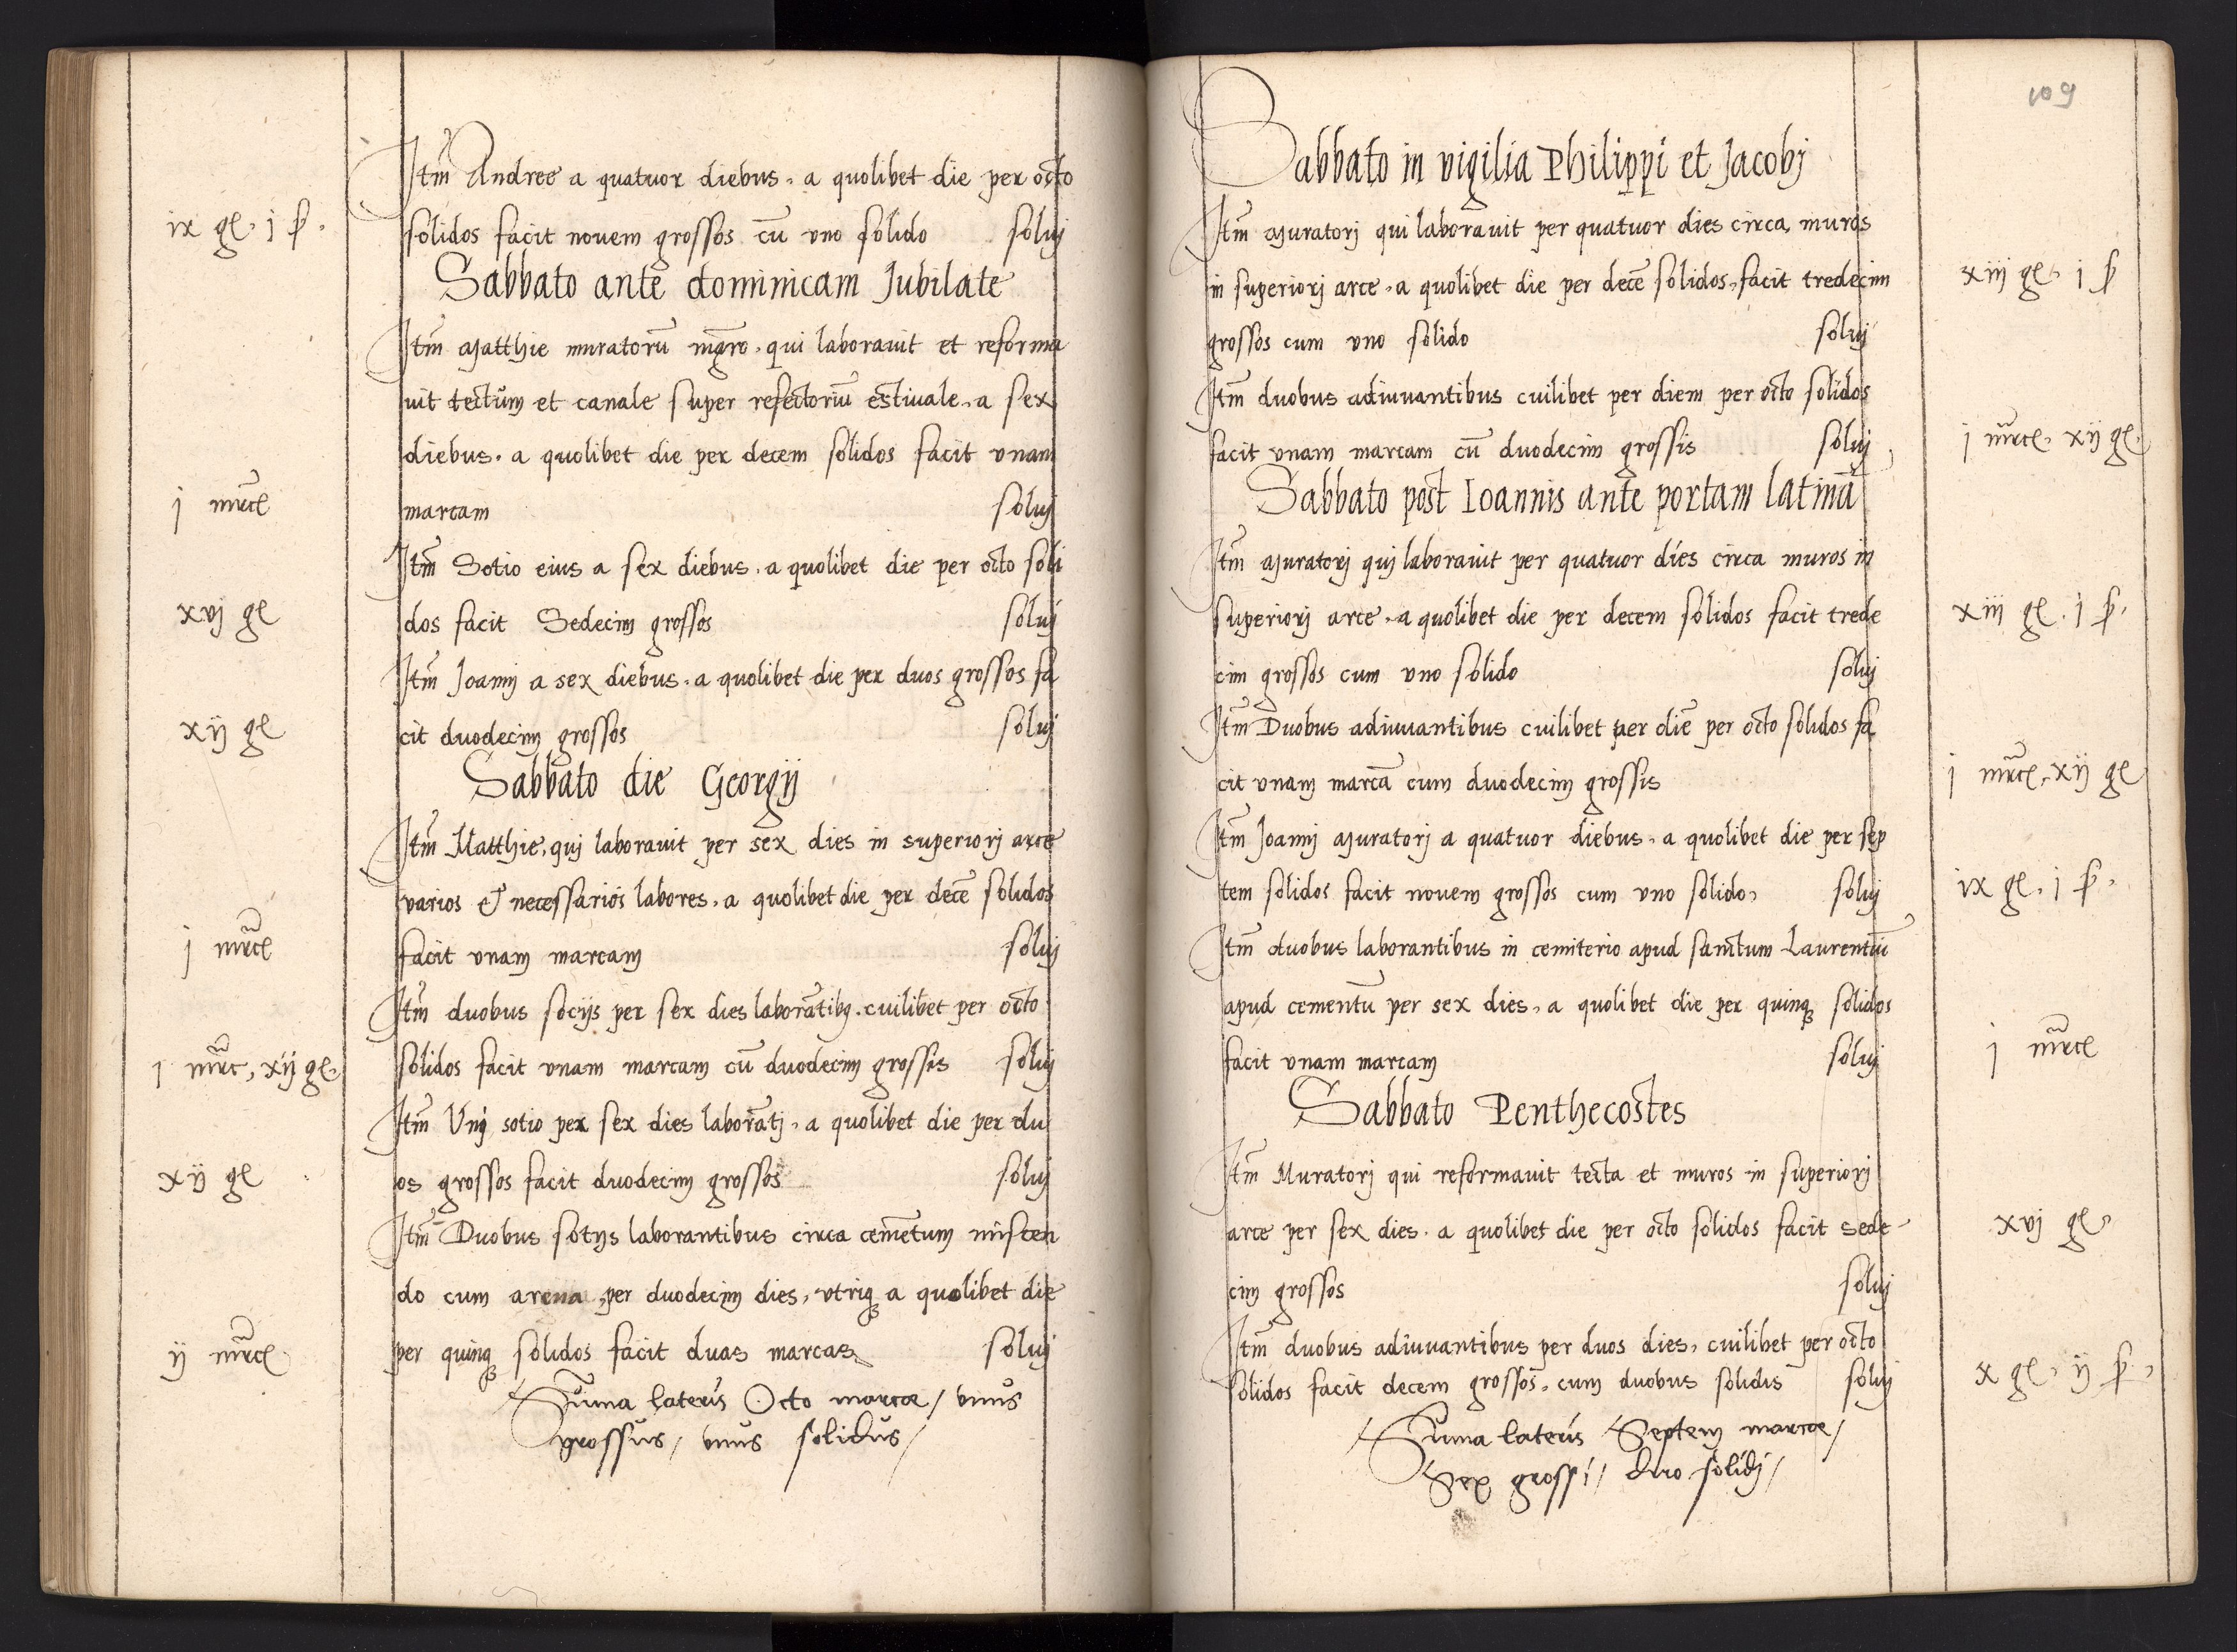 Itm̄ Andree a quatuor diebus . a quolibet die per octo
ix gl . j s .
solidos facit nouem grossos cū vno solido soluj
Sabbato ante dominicam Jubilate
Itm̄ Matthie muratorū mgro . qui laborauit et reforma
uit tectum et canale super refectoriū estiuale . a sex
diebus . a quolibet die per decem solidos facit vnam
j mrcl
marcam soluj
Itm̄ Sotio eius a sex diebus . a quolibet die per octo soli
xvj gl
dos facit Sedecim grossos soluj
Itm̄ Joannj a sex diebus . a quolibet die per duos grossos fa
xij gl
cit duodecim grossos soluj
Sabbato die Georgij
Itm̄ Matthie, quj laborauit per sex dies in superiorj arce
varios & necessarios labores . a quolibet die per decē solidos
j mrcl
facit vnam marcam soluj
Itm̄ duobus socijs per sex dies laborātibꝫ . cuilibet per octo
j mrc, xij gl.
solidos facit vnam marcam cū duodecim grossis soluj
Itm̄ Vnj sotio per sex dies laborātj . a quolibet die per du
xij gl
os grossos facit duodecim grossos soluj
Itm̄ Duobus sotijs laborantibus circa cemētum miscen
do cum arena per duodecim dies, vtriqꝫ a quolibet die
ij mrcl
per quinqꝫ solidos facit duas marcas soluj
Sūma lateris Octo marce / vnus
grossus / vnus solidus /
109
Sabbato in vigilia Philippi et Jacobj
Itm̄ Muratorj qui laborauit per quatuor dies circa muros
in superiorj arce . a quolibet die per decē solidos, facit tredecim
xiij gl . j s
grossos cum vno solido soluj
Itm̄ duobus adiuuantibus cuilibet per diem per octo solidos
facit vnam marcam cū duodecim grossis soluj
j mrcl . xij gl .
Sabbato post Ioannis ante portam latinā
Itm̄ Muratorj quj laborauit per quatuor dies circa muros in
superiorj arce . a quolibet die per decem solidos facit trede
xiij gl . j s .
cim grossos cum vno solido soluj
Itm̄ Duobus adiuuantibus cuilibet per diē per octo solidos fa
cit vnam marcā cum duodecim grossis
j mrcl, xij gl
Itm̄ Joannj Muratorj a quatuor diebus . a quolibet die per sep
tem solidos facit nouem grossos cum vno solido, soluj
ix gl . j s .
Itm̄ duobus laborantibus in cemiterio apud sanctum Laurentiū
apud cementū per sex dies, a quolibet die per quinqꝫ solidos
facit vnam marcam soluj
j mrcl
Sabbato Penthecostes
Itm̄ Muratorj qui reformauit tecta et muros in superiorj
arce per sex dies . a quolibet die per octo solidos facit sede
xvj gl,
cim grossos soluj
Itm̄ duobus adiuuantibus per duos dies, cuilibet per octo
solidos facit decem grossos, cum duobus solidis soluj
x gl, ij s,
Sūma lateris Septem marce /
Sex grossi / duo solidj /